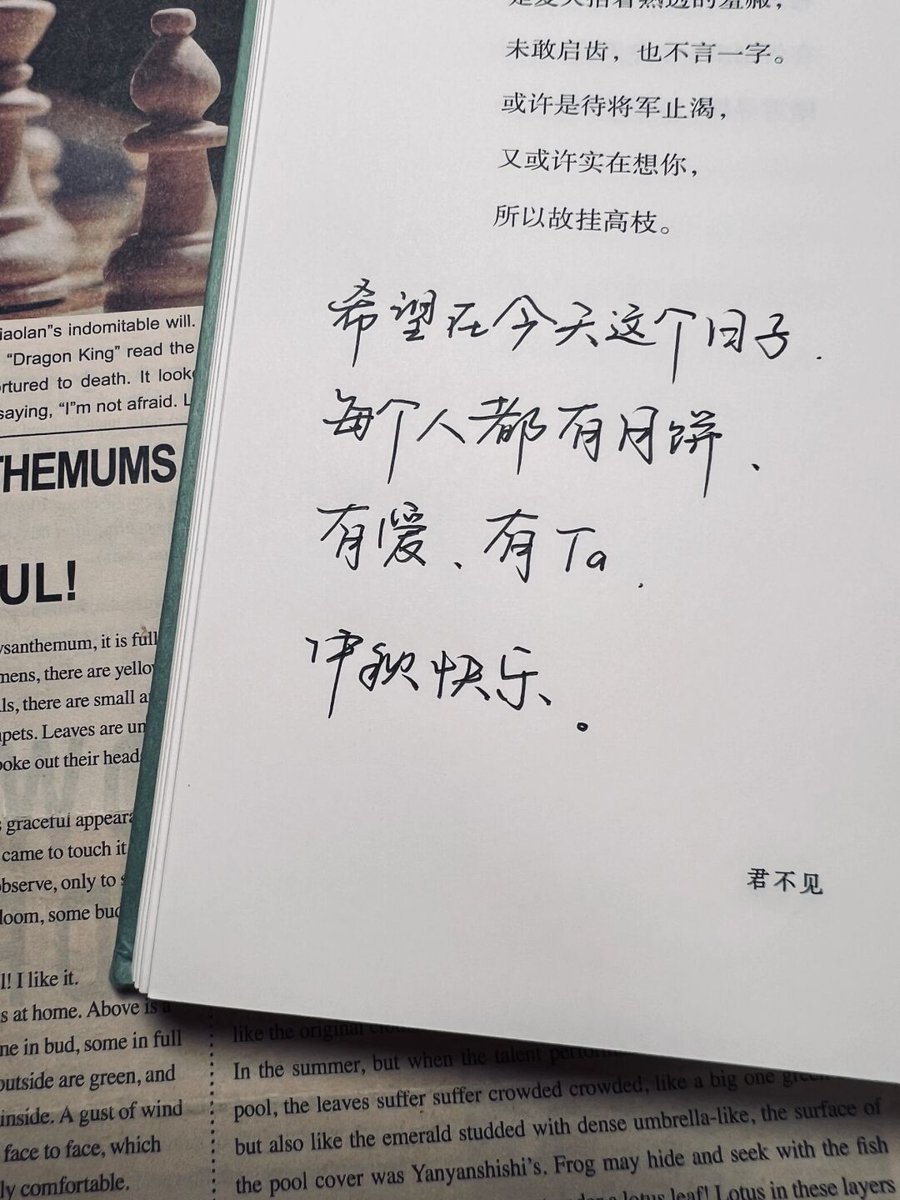 未敢启齿，也不言一字。
或许是待将军止渴，
又或许实在想你，
所以故挂高枝。
希望在今天这个日子.
每个人都有月饼、
有爱、有Ta.
中秋快乐、。
君不见
iaolan"s indomitable will.
"Dragon King" read the
rtured to death. It look
saying, "I"m not afraid. L
THEMUMS
UL!
ysanthemum, it is full
mens, there are yello
ls, there are small a
pets. Leaves are un
oke out their head
s graceful appeara
came to touch it
observe, only to s
loom, some bud
l! I like it.
s at home. Above is a
ne in bud, some in full
outside are green, and
inside. A gust of wind
face to face, which
ly comfortable.
like the original
In the summer, but when the talent perform
pool, the leaves suffer suffer crowded crowded, like a big one green
but also like the emerald studded with dense umbrella-like, the surface of
the pool cover was Yanyanshishi's. Frog may hide and seek with the fish
a lotus leaf! Lotus in these layers